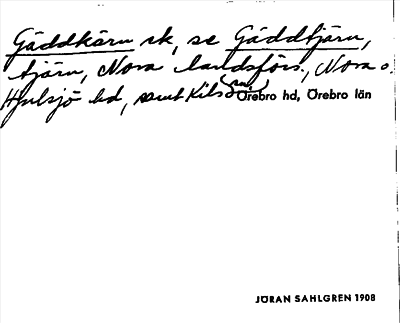 Gäddkärn sk, se Gäddtjärn,
tjärn, Nora landsförs., Nora o.
Hjulsjö hd, samt Kils sn
Örebro hd, Örebro län
JÖRAN SAHLGREN 1908